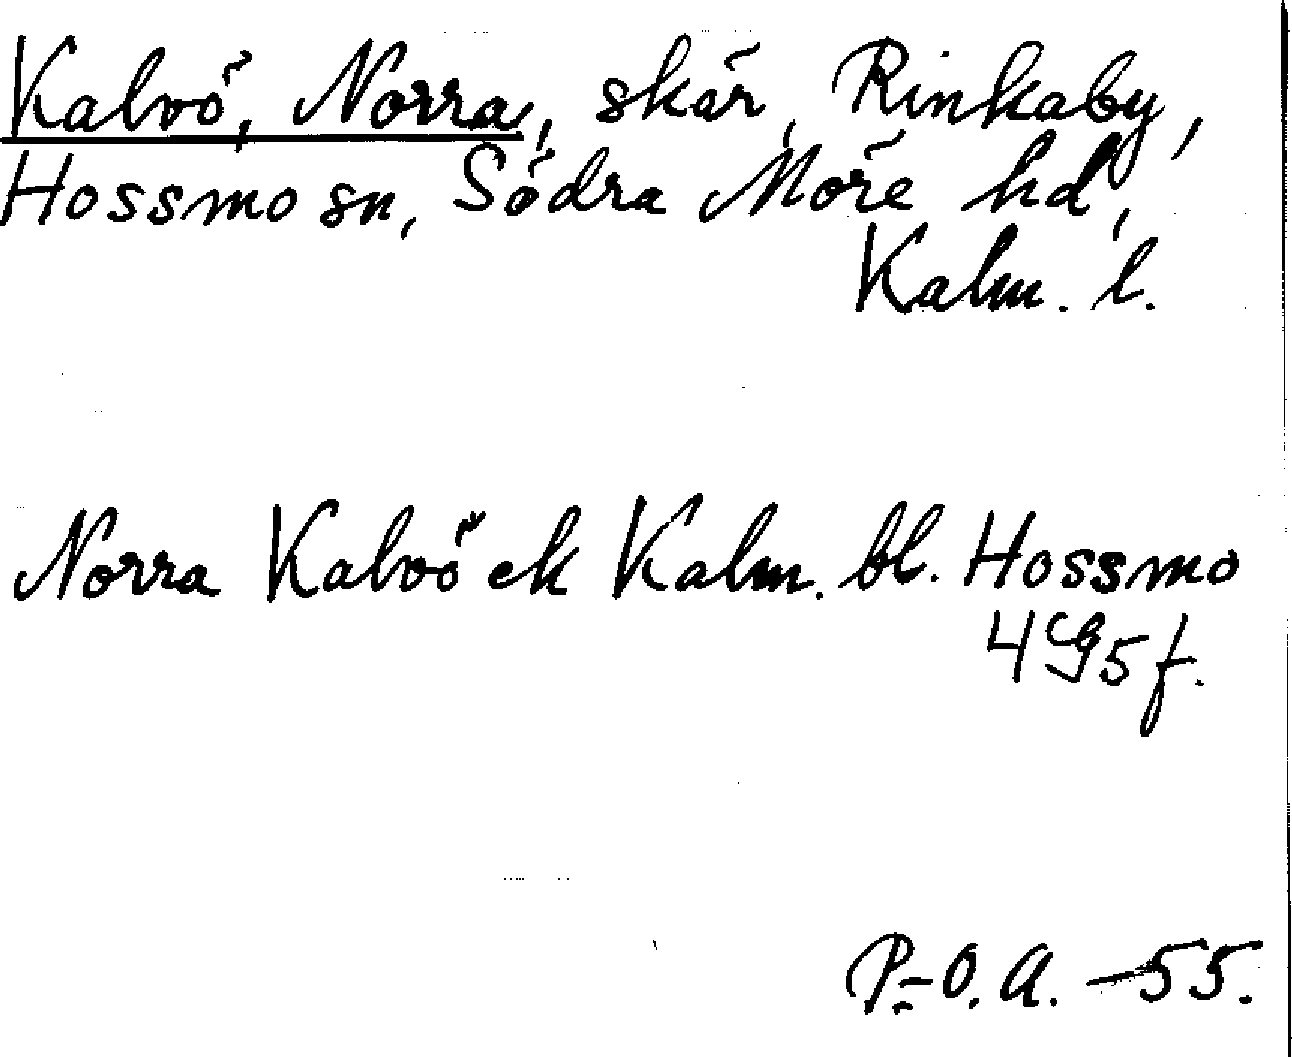 Kalvö, Norra, skär, Rinkaby,
Hossmo sn, Södra Möre hd,
Kalm. l.
Norra Kalvö ek Kalm. bl. Hossmo
4G5f.
P.-O. A. -55.